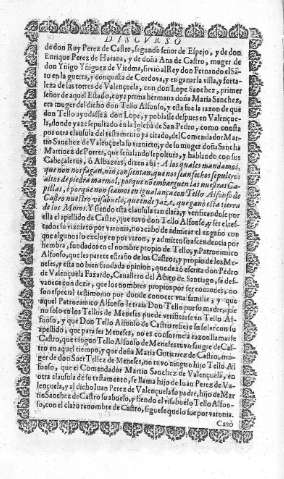 DISCVRSO
de don Ruy Perez de Castro, segundo señor de Espejo, y de don
Enrique Perez de Harana, y de doña Ana de Castro, muger de
don Yñigo Yñiguez de Viedma, siruio al Rey don Fernando el Sã-
to en la guerra, y conquista de Cordoua, y en ganar la villa, y forta-
leza de las torres de Valençuela, con don Lope Sanchez, primer
señor de aquel Estado, cuya prima hermana doña Maria Sanchez,
era muger del dicho don Tello Alfonso, y esta fue la razon de que
don Tello ayudasse à don Lope, y poblasse despues en Valençue-
la, donde yaze sepultado en la Iglesia de San Pedro, como consta
por otra clausula del testamento ya citado, del Comendador Mar-
tin Sanchez de Valençuela su viznieto, y de su muger doña Sancha
Martinez de Porres, que señalando sepultura, y hablando con sus
Cabeçaleros, ò Albaceas, dizen assi: A los quales mandamos,
que non nos fagan, nin consientan, que nos sean fechos sepulcros
altos de piedra marmol, porque no embarguen las nuestras Ca-
pillas, è porque non seamos en igualança con Tello Alfonso de
Castro nuestro visabuelo, que ende yaze, que ganò esta tierra
de los Moros. Y siendo esta clausula tan clara, y verificandose por
ella el apellido de Castro, que tuuo don Tello Alfonso, y ser el de
todos su viznieto por varonia, no acabo de admirar el engaño con
que algunos lo excluyen por varon, y admiten su ascendencia por
hembra, fundados en el nombre propio de Tello, y Patronimico
Alfonso, que les parece estraño de los Castros, y propio de los Me-
neses, y està no bien fundada opinion, que dexò escrita don Pedro
de Valençuela Faxardo, Cauallero del Abito de Santiago, se des-
vanece con dezir, que los nombres propios por ser comunes, no
son especial testimonio por donde conocer vna familia; y que
aquel Patronimico Alfonso heredò Don Tello por su madre, pues
no solo en los Tellos de Meneses puede verificarse vn Tello Al-
fonso, y que Don Tello Alfonso de Castro necessito señalar con su
apellido, que para ser Meneses, no es consonancia razon llamarse
Castro, que ningun Tello Alfonso de Meneses tuuo muger de Cas-
tro en aquel tiempo, y que doña Maria Gutierrez de Castro, mu-
ger de don Suer Tellez de Meneses, no tuuo ningun hijo Tello Al-
fonso, que el Comendador Martin Sanchez de Valençuela, en
otra clausula de su testamento, se llama hijo de Iuan Perez de Va-
lençuela, y al dicho Iuan Perez de Valençuela su padre, hijo de Mar-
tin Sanchez de Castro su abuelo, y siendo el visabuelo Tello Alfon-
so, con el claro renombre de Castro, siguese que lo fue por varonia.
Casò